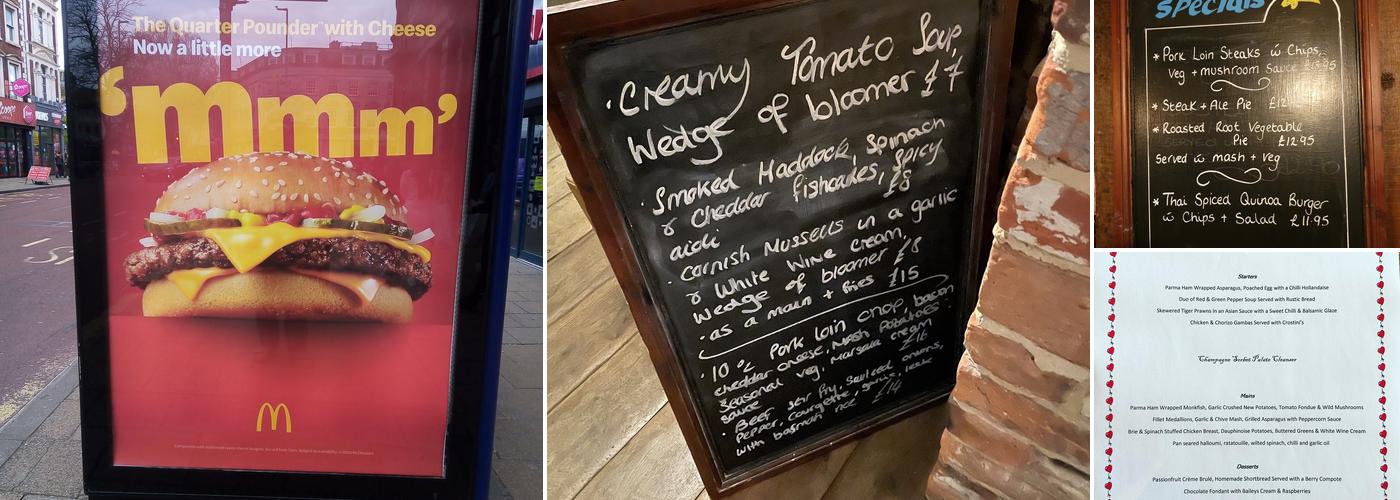 The Quarter Pounder™ with Cheese
Now a little more
'mmm'
· Creamy Tomato Soup,
Wedge of bloomer £7
· Smoked Haddock, Spinach
& Cheddar fishcakes, Spicy
aioli £8
· Cornish Mussells in a garlic
& White Wine Cream,
Wedge of bloomer £8
· as a main + fries £15
· 10oz Pork loin chop, bacon
cheddar cheese, Mash Potatoes
Seasonal veg, Marsala cream
sauce
· Beef stir fry, Sauteed onions,
Pepper, Courgette, garlic, leek
with basmati rice £14
Specials
* Pork Loin Steaks w Chips,
Veg + mushroom Sauce £13.95
* Steak + Ale Pie £12
* Roasted Root Vegetable
Pie £12.95
Served w mash + Veg
* Thai Spiced Quinoa Burger
w Chips + Salad £11.95
Starters
Parma Ham Wrapped Asparagus, Poached Egg with a Chilli Hollandaise
Duo of Red & Green Pepper Soup Served with Rustic Bread
Skewered Tiger Prawns In an Asian Sauce with a Sweet Chilli & Balsamic Glaze
Chicken & Chorizo Gambas Served with Crostini's
Champagne Sorbet Palate Cleanser
Mains
Parma Ham Wrapped Monkfish, Garlic Crushed New Potatoes, Tomato Fondue & Wild Mushrooms
Fillet Medallions, Garlic & Chive Mash, Grilled Asparagus with Peppercorn Sauce
Brie & Spinach Stuffed Chicken Breast, Dauphinoise Potatoes, Buttered Greens & White Wine Cream
Pan seared halloumi, ratatouille, wilted spinach, chilli and garlic oil
Desserts
Passionfruit Crème Brulé, Homemade Shortbread Served with a Berry Compote
Chocolate Fondant with Baileys Cream & Raspberries